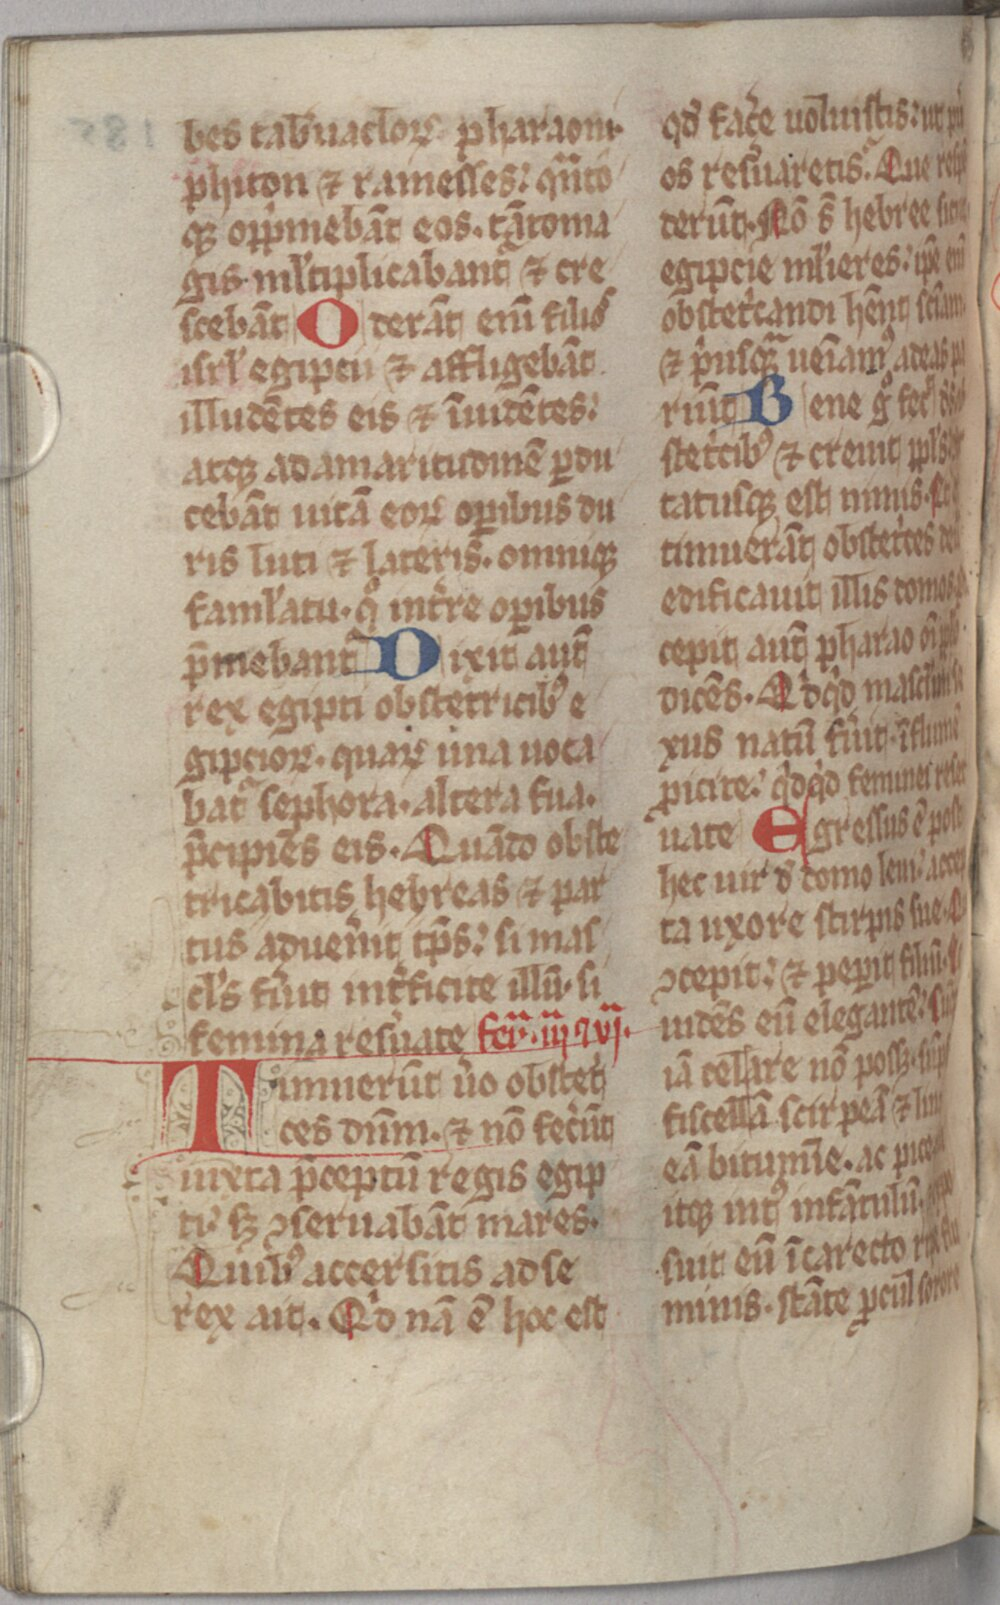 bes tab̾naclorꝝ pharaoni·
phiton ⁊ ramesses: qͣnto
qꝫ opp̾mebāt eos. tāto ma
gis ml̾tiplicabantᷣ ⁊ cre
scebāt Oderāt em̄ filios
isrl̾ egiptii ⁊ affligebāt
illudētes eis ⁊ īuidētes:
atqꝫ ad amaritudinē ꝑdu
cebāt uitā eoꝝ oꝑibus du
ris luti ⁊ lateris. omniqꝫ
famulatu. qͦ int̾re oꝑibus
p̄mebantᷣ Dixit aut̄
rex egipti obstetricibꝰ e
gipcioꝝ. quaꝝ una uoca
batᷣ sephora. altera fua.
p̄cipiēs eis. Quādo obste
tricabitis hebreas ⁊ par
tus aduen̾it tp̄s: si mas
cl̾s fu̾it int̾ficite illū. si
femina res̾uate fer̄. iij ⁊ vj.
Timuerūt u̾o obstet̾
ces dūm. ⁊ nō fec̾ūt
iuxta p̄ceptū regis egip
ti: sꝫ ꝯseruabāt mares.
Quibꝰ accersitis ad se
rex ait. Qͥd nā ē hoc est
qd̾ fac̾e uoluistis: ut
os res̾uaretis. Que
terūt. Nō s̄ hebree
egipcie ml̾ieres: ip̄e
obstet̾candi hēnt sciām
⁊ p̾usqͣꝫ ueīamꝰ ad eas
riūt Bene gͦ fec̾
stet̾cibꝰ ⁊ creuit ppl̾s
tatusqꝫ est nimis.
timuerāt obstet̾ces
edificauit illis domos
cepit aut̄ pharao
dicēs. Qͥdqͥd mascl̾ini
xus natū fu̾it. ī flumē
ꝓicite: qͥdqͥd feminei
uate Egressus ē
hec uir d̾ domo leui:
ta uxore stirpis sue.
ꝯcepit: ⁊ peꝑit filiū.
uidēs eū elegantē:
iā celare nō possꝫ.
fiscellā scirpeā ⁊
eā bitumīe. ac pice
itqꝫ intᷣ infātulū.
suit eū ī carecto
minis. stāte ꝓcul sorore